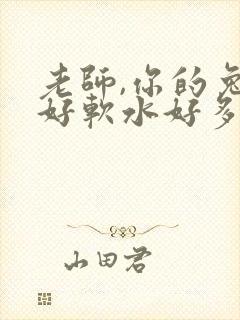 老師,你的兔
好軟水好多
山田君